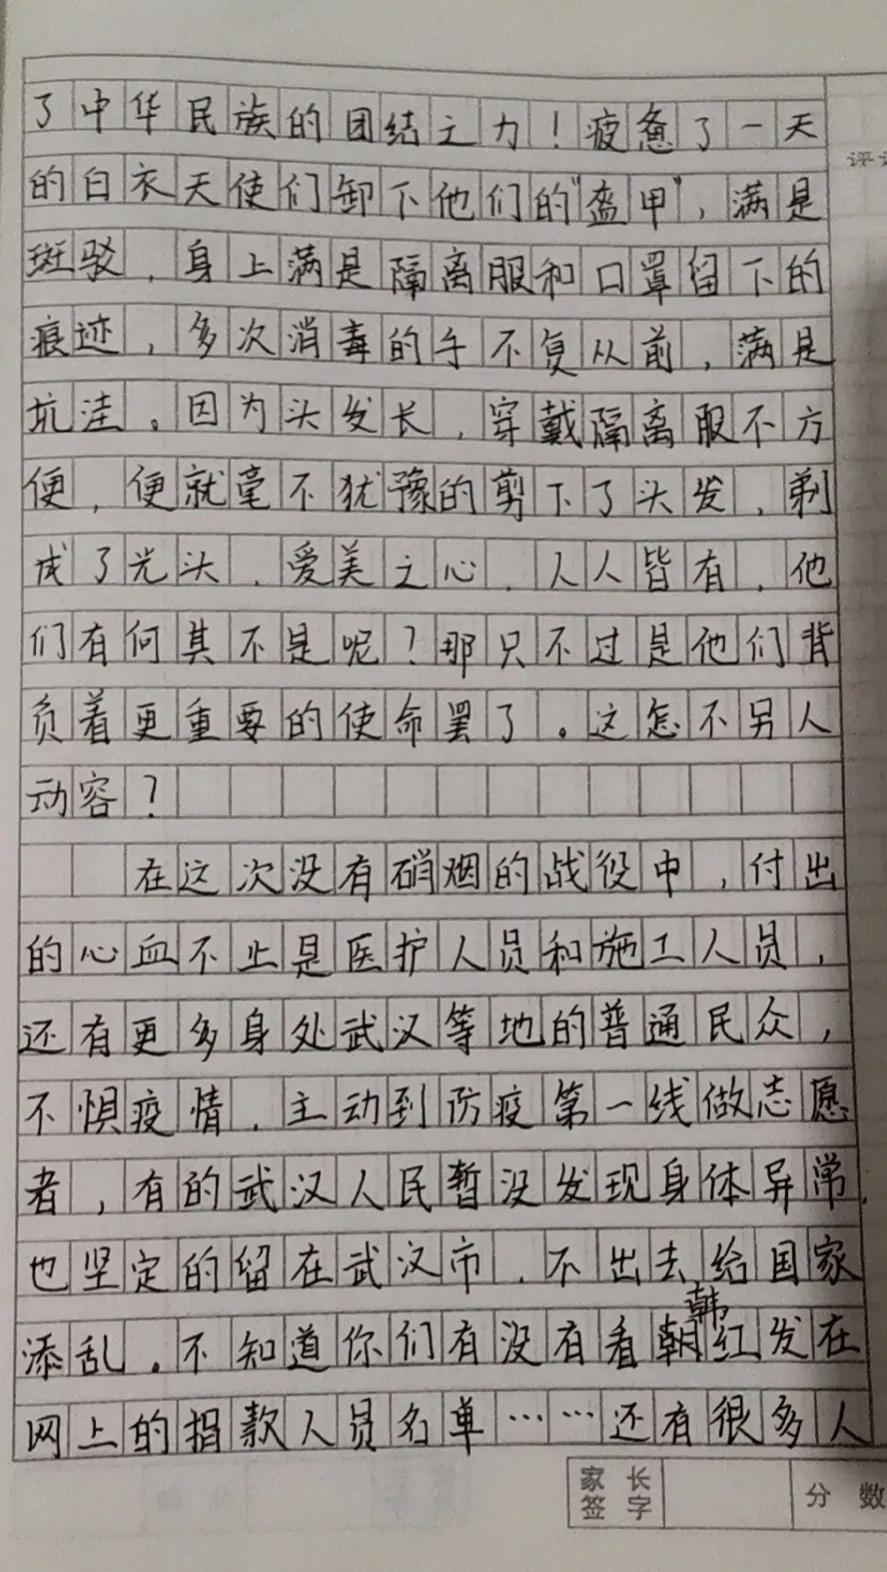 了中华民族的团结之力！疲惫了一天
的白衣天使们卸下他们的“盔甲”，满是
斑驳，身上满是隔离服和口罩留下的
痕迹，多次消毒的手不复从前，满是
坑洼。因为头发长，穿戴隔离服不方
便，便就毫不犹豫的剪下了头发，剃
成了光头，爱美之心，人人皆有，他
们有何其不是呢？那只不过是他们背
负着更重要的使命罢了。这怎不另人
动容？
在这次没有硝烟的战役中，付出
的心血不止是医护人员和施工人员，
还有更多身处武汉等地的普通民众，
不惧疫情，主动到防疫第一线做志愿
者，有的武汉人民暂没发现身体异常，
也坚定的留在武汉市，不出去给国家
添乱。不知道你们有没有看韩红发在
网上的捐款人员名单……还有很多人
家长
签字
分数